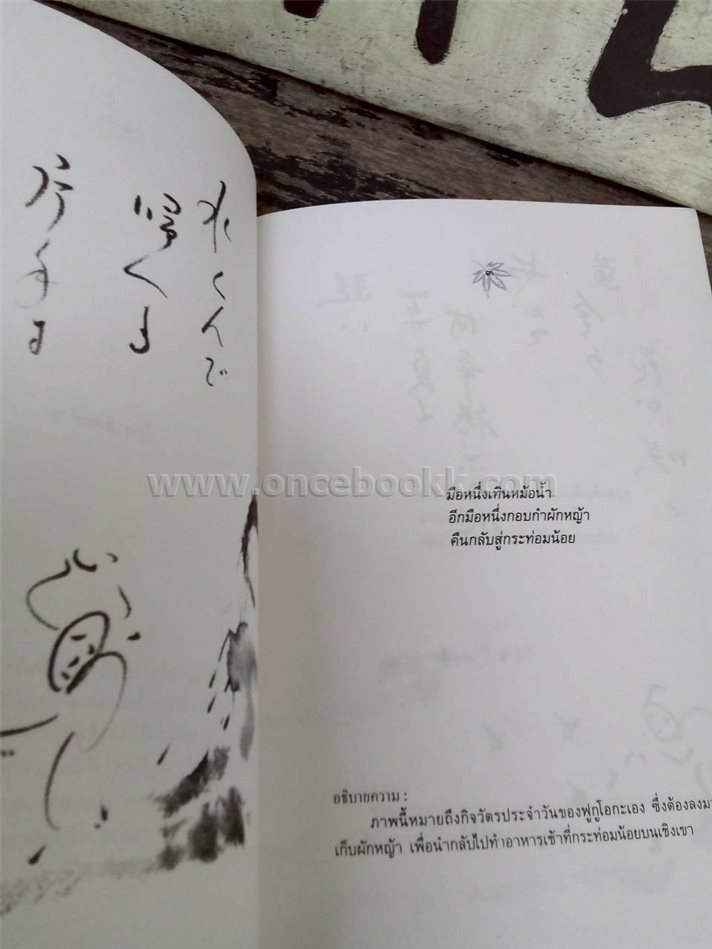 水くんで
帰へる
www.oncebookk.com
๓
มือหนึ่งเทินหม้อน้ำ
อีกมือหนึ่งกอบกำผักหญ้า
คืนกลับสู่กระท่อมน้อย
อธิบายความ :
ภาพนี้หมายถึงกิจวัตรประจำวันของฟูกูโอกะเอง ซึ่งต้องลงมา
เก็บผักหญ้า เพื่อนำกลับไปทำอาหารเช้าที่กระท่อมน้อยบนเชิงเขา